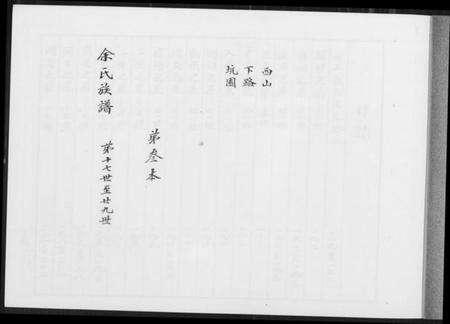 西山
下路
坑園
第叁本
余氏族譜 第十七世至廿九世